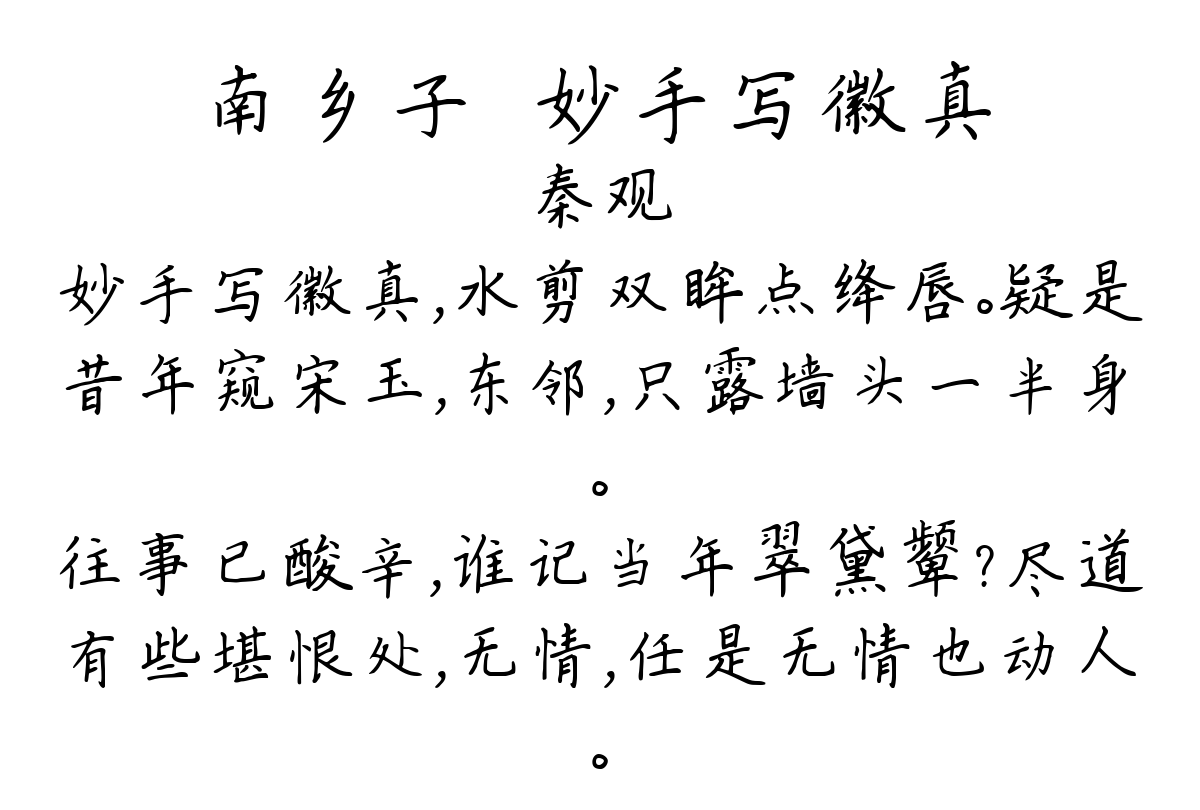 南乡子 妙手写徽真
秦观
妙手写徽真,水剪双眸点绛唇。疑是
昔年窥宋玉,东邻,只露墙头一半身
。
往事已酸辛,谁记当年翠黛颦?尽道
有些堪恨处,无情,任是无情也动人
。